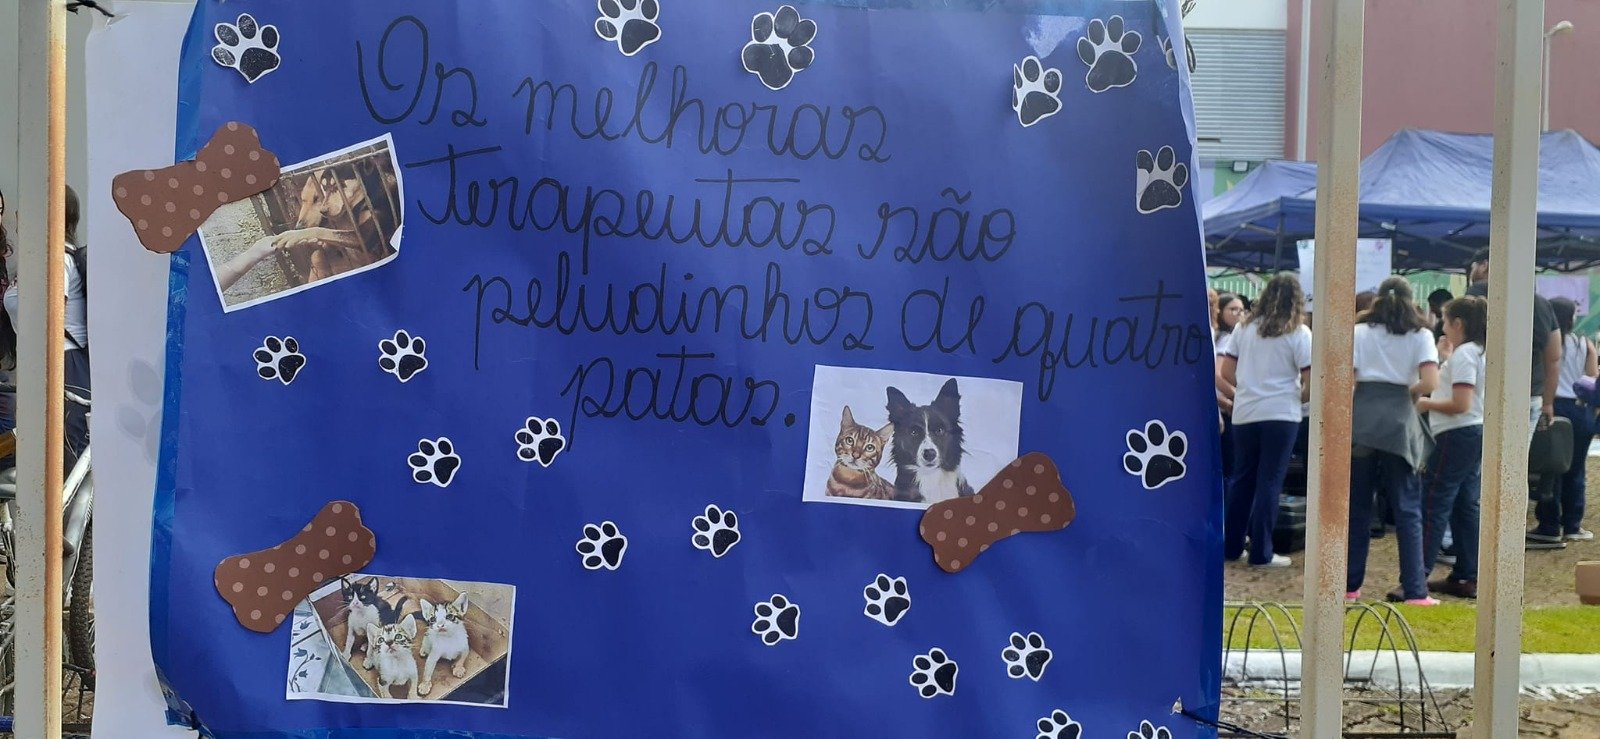 Os melhoras
terapeutas são
peludinhos de quatro
patas.